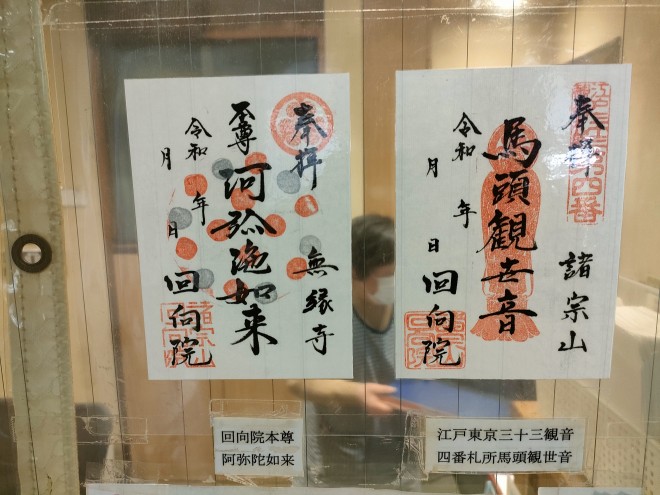 奉拝
無縁寺
至尊
阿弥陀如来
令和 年
月 日
回向院
奉拝
諸宗山
馬頭観世音
令和 年
月 日
回向院
回向院本尊
阿弥陀如来
江戸東京三十三観音
四番札所馬頭観世音